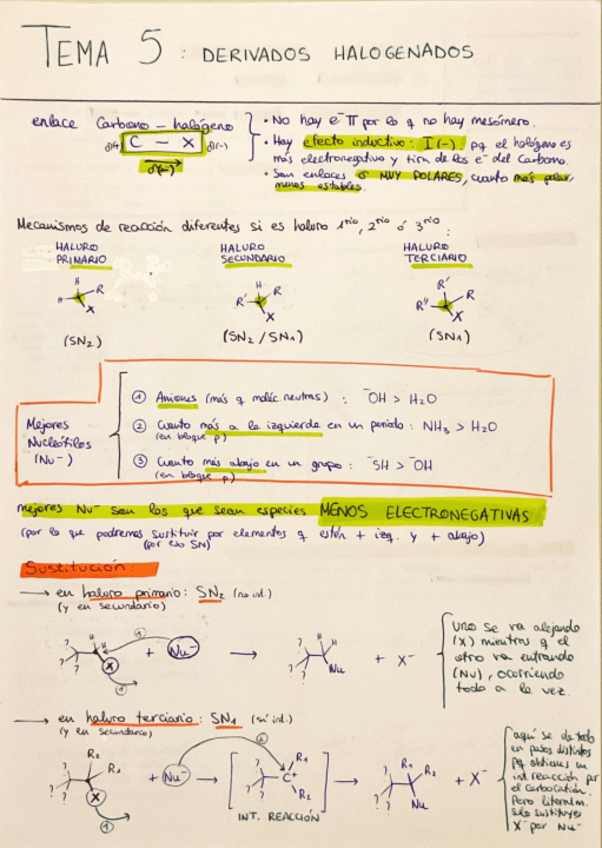 TEMA 5 : DERIVADOS HALOGENADOS
enlace Carbono – halógeno
δ(+) C – X δ(-)
δ(-)
• No hay e⁻ π por lo q no hay mesómero.
• Hay efecto inductivo: I(-) pq el halógeno es
más electronegativo y tira de los e⁻ del carbono.
• Son enlaces σ MUY POLARES, cuanto más polar,
menos estables.
Mecanismos de reacción diferentes si es haluro 1rio, 2rio ó 3rio:
HALURO
PRIMARIO
H
H
R
X
(SN2)
HALURO
SECUNDARIO
H
R'
R
X
(SN2 / SN1)
HALURO
TERCIARIO
R'
R''
R
X
(SN1)
Mejores
Nucleófilos
(Nu⁻)
① Aniones (más q moléc. neutras) : ⁻OH > H2O
② Cuanto más a la izquierda en un periodo : NH3 > H2O
(en bloque p)
③ Cuanto más abajo en un grupo : ⁻SH > ⁻OH
(en bloque p)
mejores Nu⁻ son los que sean especies MENOS ELECTRONEGATIVAS
(por lo que podremos sustituir por elementos q estén + izq. y + abajo)
(por eso SN)
Sustitución:
→ en haluro primario: SN2 (no int.)
(y en secundario)
? ? ? H H X ① ① + Nu⁻ → ? ? ? H H Nu + X⁻
Uno se va alejando
(X) mientras q el
otro va entrando
(Nu), ocurriendo
todo a la vez.
→ en haluro terciario: SN1 (sí int.)
(y en secundario)
? ? ? R2 R1 X ① + Nu⁻ ② → [ ? ? ? C⁺ R1 R2 ] → ? ? ? R1 R2 Nu + X⁻
INT. REACCIÓN
aquí se da todo
en pasos distintos
pq obtienes un
int reacción por
el carbocatión.
Pero literalm.
solo sustituyes
X⁻ por Nu⁻